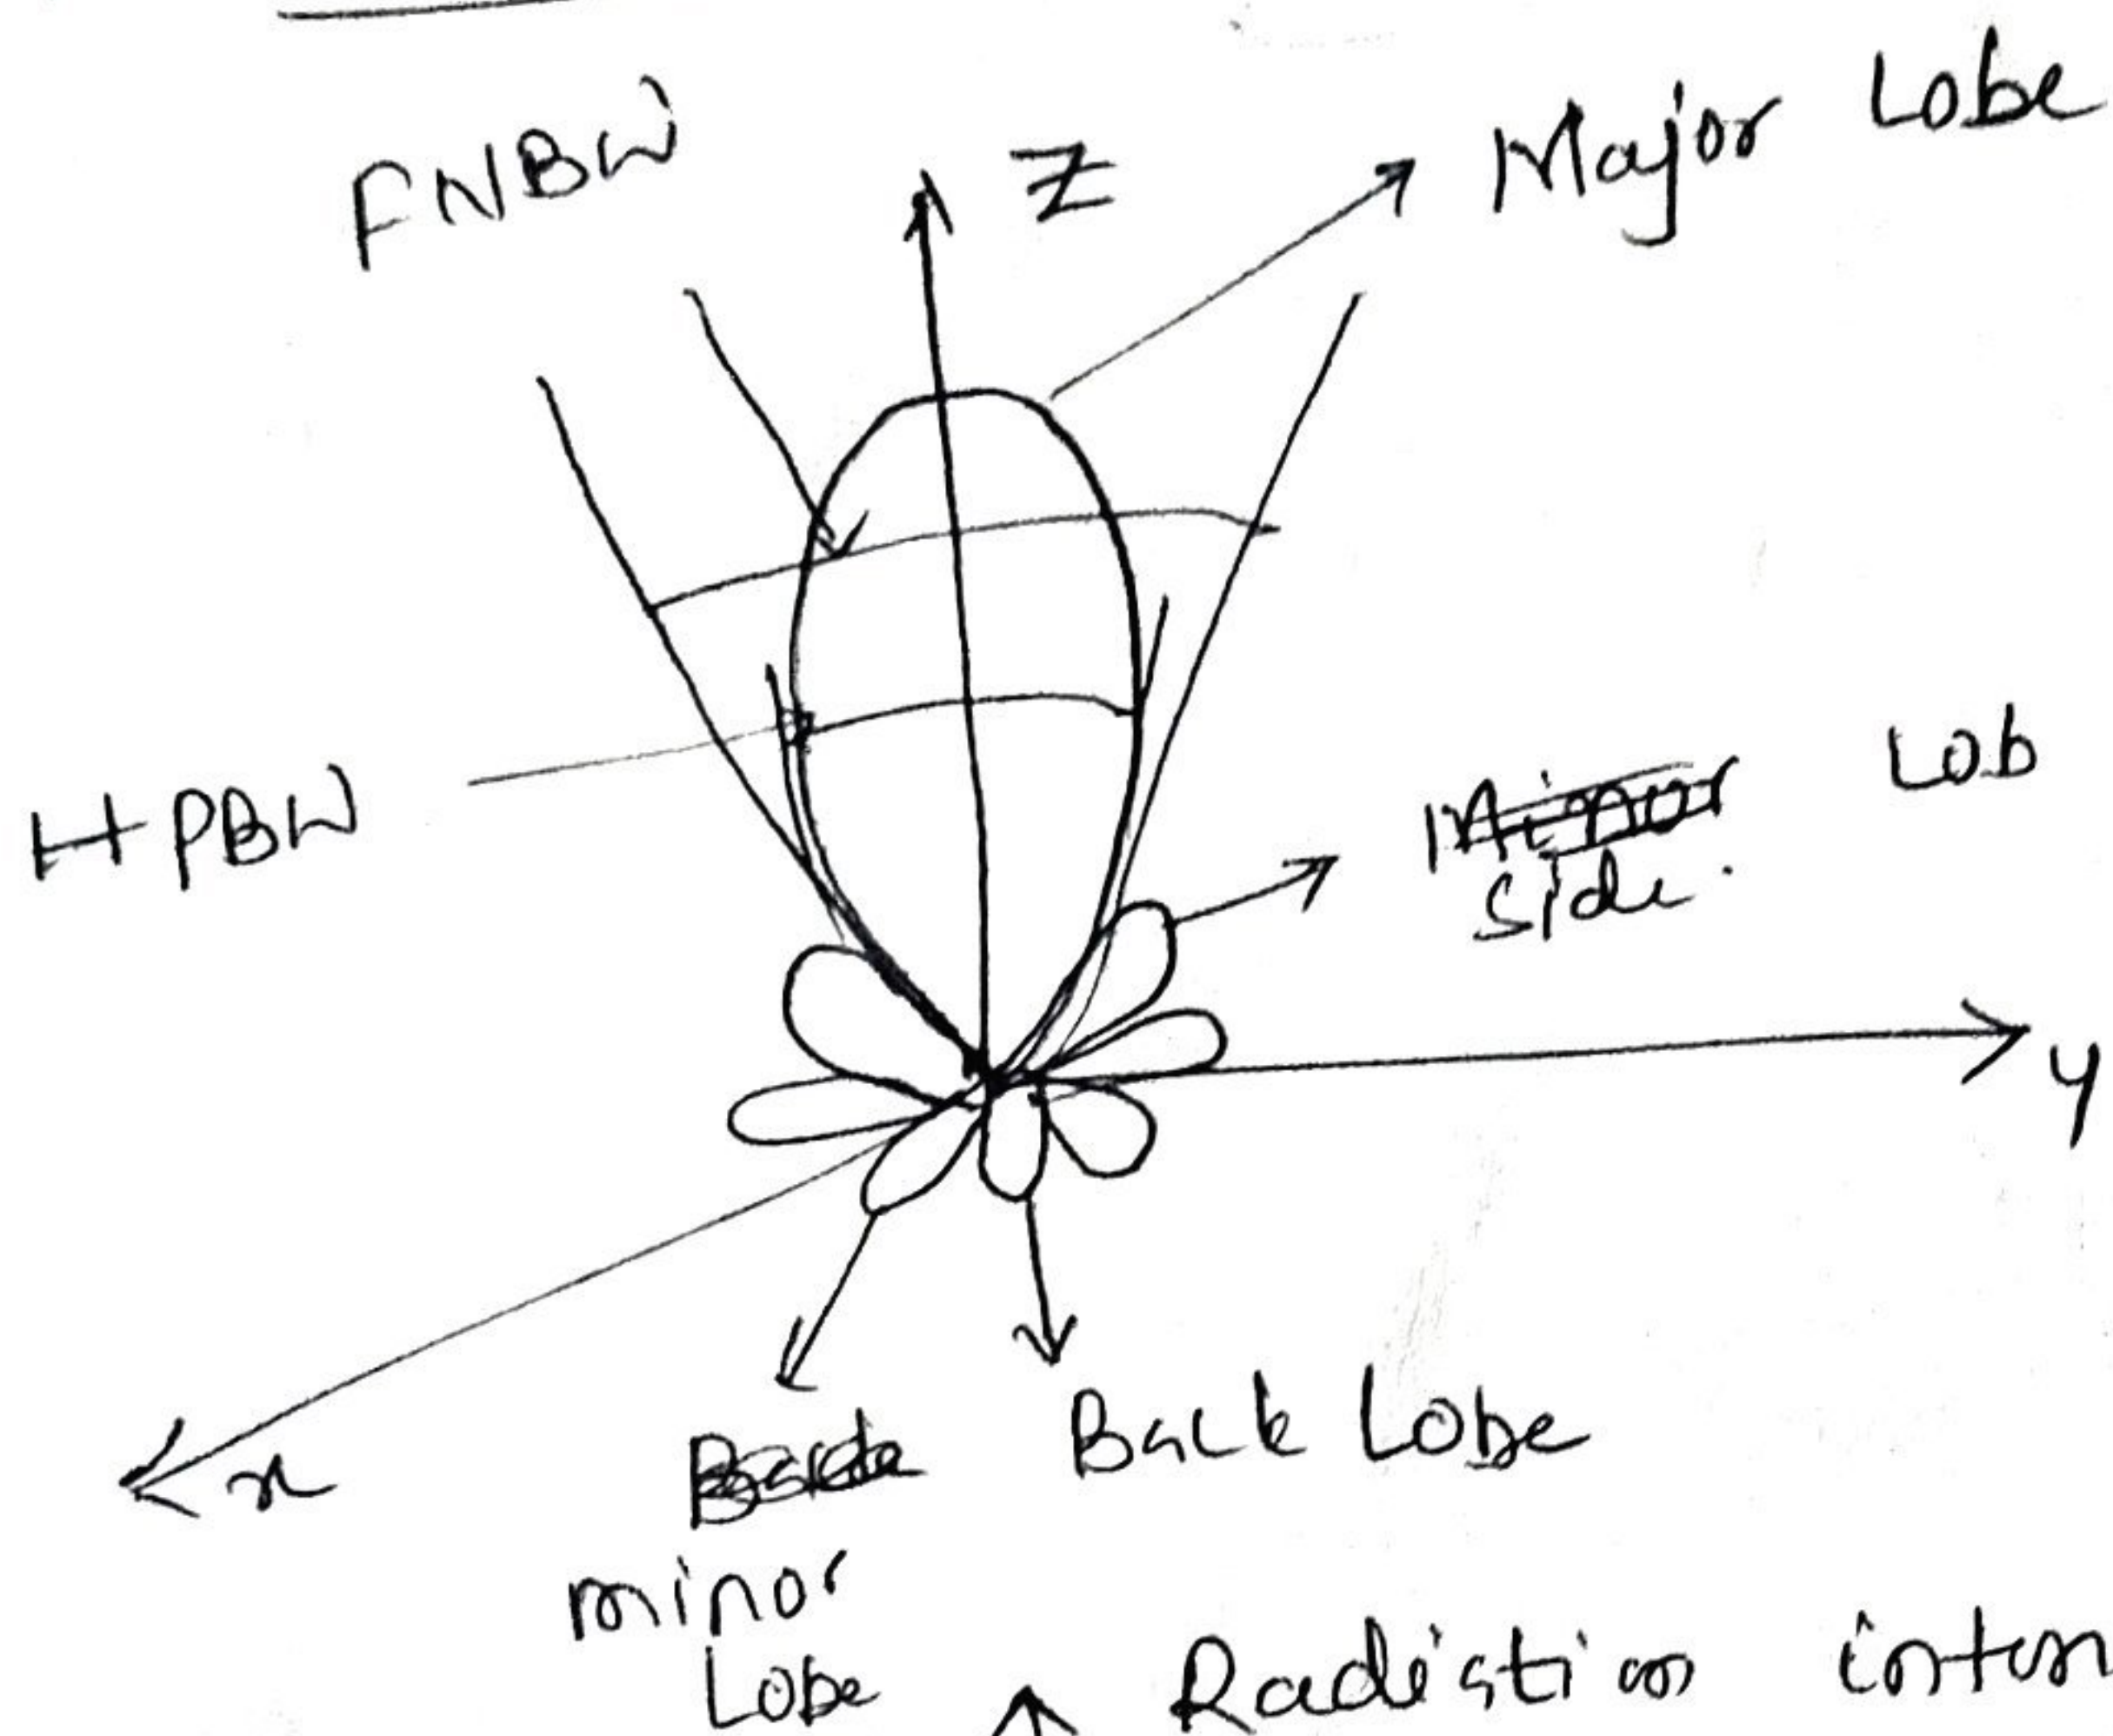 FNBW
Z
Major Lobe
HPBW
Minor Lob
side.
y
x
Back Lobe
minor
Lobe
Radiation inten